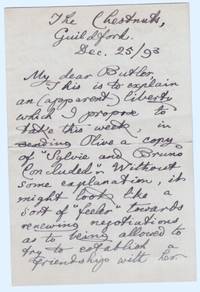 The Chestnuts,
Guildford.
Dec. 25/93
My dear Butler,
This is to explain
an (apparent) liberty
which I propose to
take this week, in
sending Olive a copy
of "Sylvie and Bruno
Concluded". Without
some explanation, it
might look like a
sort of "feeler" towards
renewing negotiations
as to being allowed to
try to establish a
friendship with her